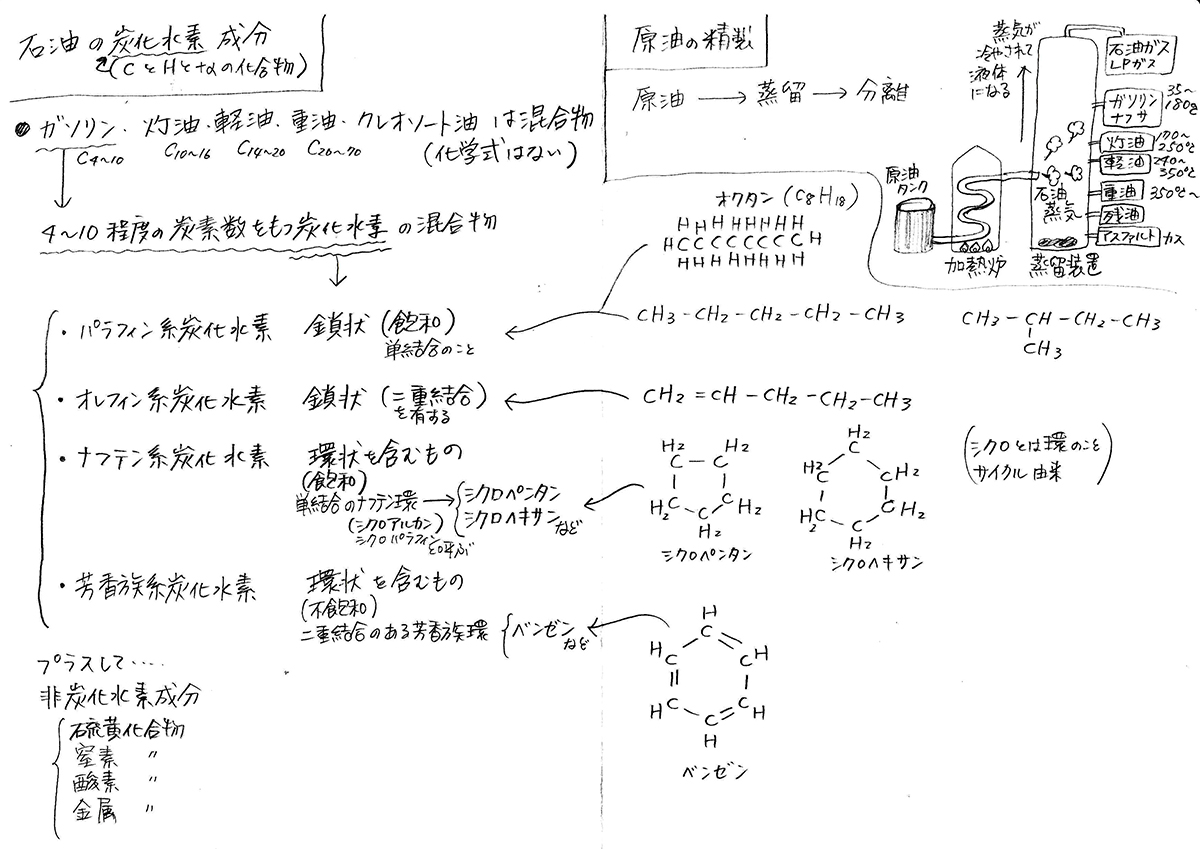 石油の炭化水素成分
(CとHと+αの化合物)
● ガソリン・灯油・軽油・重油・クレオソート油は混合物
C4~10 C10~16 C14~20 C20~70 (化学式はない)
4~10程度の炭素数をもつ炭化水素の混合物
・パラフィン系炭化水素 鎖状(飽和)
単結合のこと
・オレフィン系炭化水素 鎖状(二重結合)
を有する
・ナフテン系炭化水素 環状を含むもの
(飽和)
単結合のナフテン環 → シクロペンタン
(シクロアルカン) シクロヘキサン など
シクロパラフィン と呼ぶ
・芳香族系炭化水素 環状を含むもの
(不飽和)
二重結合のある芳香族環 ベンゼン など
プラスして・・・・・
非炭化水素成分
硫黄化合物
窒素 〃
酸素 〃
金属 〃
原油の精製
原油 → 蒸留 → 分離
蒸気が
冷やされて
液体
になる
石油ガス
LPガス
ガソリン 35~
ナフサ 180℃
灯油 170~
250℃
軽油 240~
350℃
重油 350℃~
残油
アスファルト カス
原油
タンク
加熱炉
石油
蒸気
蒸留装置
オクタン(C8H18)
HHHHHHHH
HCCCCCCCCH
HHHHHHHH
CH3-CH2-CH2-CH2-CH3
CH3-CH-CH2-CH3
CH3
CH2=CH-CH2-CH2-CH3
H2 H2
C-C
H2C CH2
C
H2
シクロペンタン
H2
C
H2C CH2
H2C CH2
C
H2
シクロヘキサン
(シクロとは環のこと
サイクル由来)
H
C
HC CH
HC CH
C
H
ベンゼン